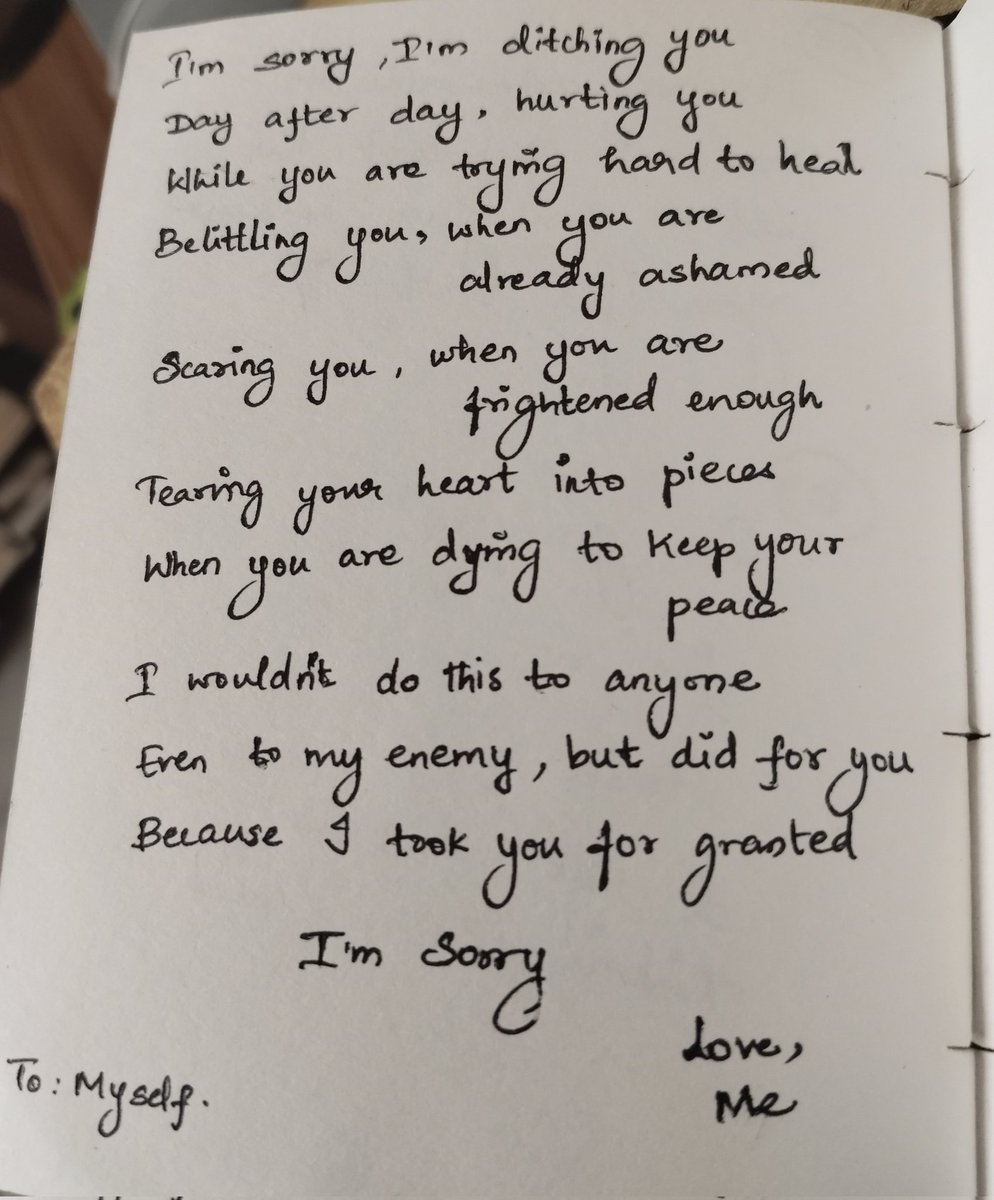 I'm sorry, I'm ditching you
Day after day, hurting you
While you are trying hard to heal
Belittling you, when you are
already ashamed
Scaring you, when you are
frightened enough
Tearing your heart into pieces
When you are dying to keep your
peace
I wouldn't do this to anyone
Even to my enemy, but did for you
Because I took you for granted
I'm Sorry
Love,
Me
To: Myself.